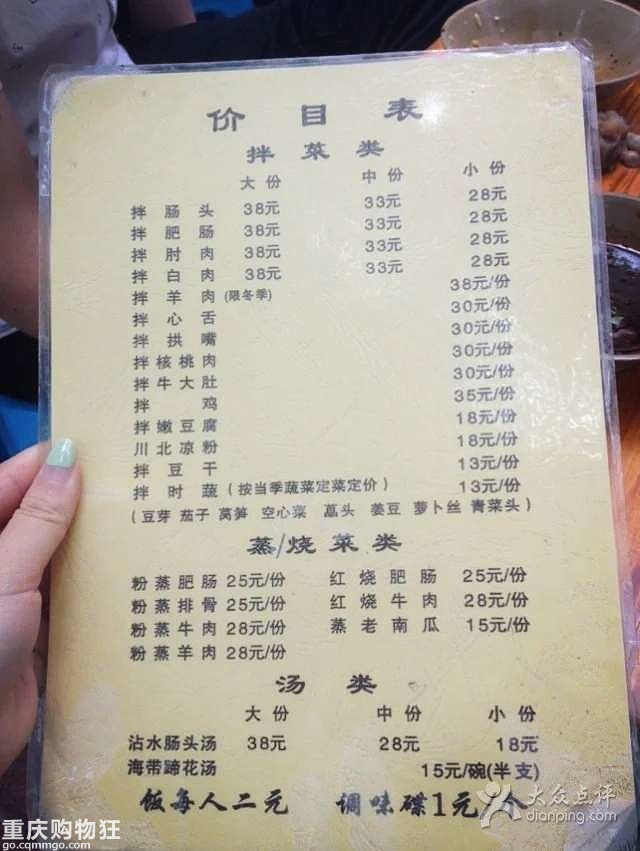 价目表
拌菜类
大份 中份 小份
拌肠头 38元 33元 28元
拌肥肠 38元 33元 28元
拌肘肉 38元 33元 28元
拌白肉 38元 33元 28元
拌羊肉(限冬季) 38元/份
拌心舌 30元/份
拌拱嘴 30元/份
拌核桃肉 30元/份
拌牛大肚 30元/份
拌鸡 35元/份
拌嫩豆腐 18元/份
川北凉粉 18元/份
拌豆干 13元/份
拌时蔬(按当季蔬菜定菜定价) 13元/份
(豆芽 茄子 莴笋 空心菜 藠头 姜豆 萝卜丝 青菜头)
蒸/烧菜类
粉蒸肥肠 25元/份 红烧肥肠 25元/份
粉蒸排骨 25元/份 红烧牛肉 28元/份
粉蒸牛肉 28元/份 蒸老南瓜 15元/份
粉蒸羊肉 28元/份
汤类
大份 中份 小份
沾水肠头汤 38元 28元 18元
海带蹄花汤 15元/碗(半支)
饭每人二元 调味碟1元/个
大众点评
dianping.com
重庆购物狂
go.cqmmgo.com